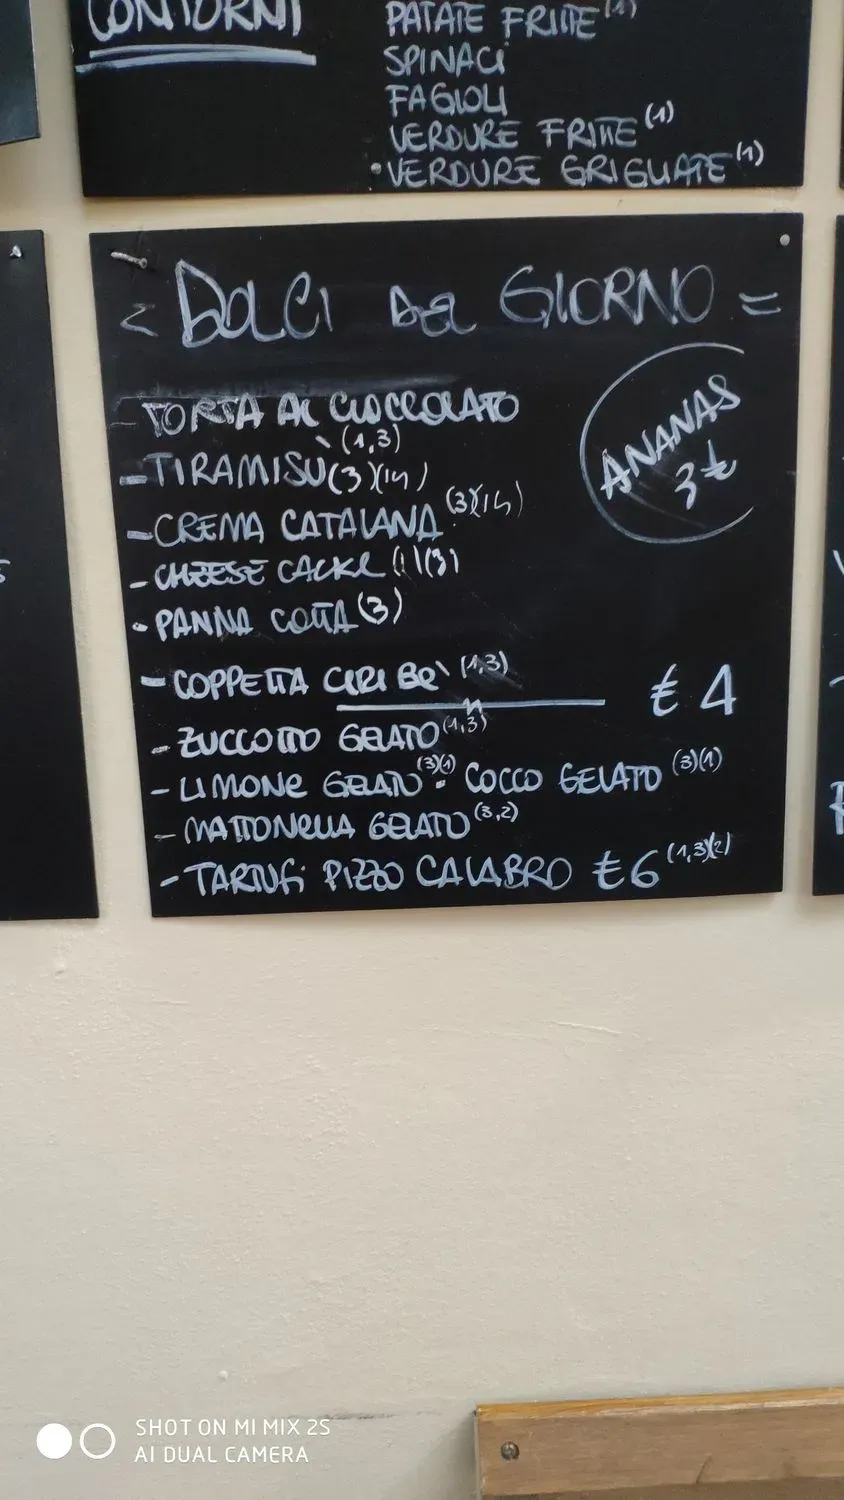 CONTORNI
PATATE FRITTE (1)
SPINACI
FAGIOLI
VERDURE FRITTE (1)
VERDURE GRIGLIATE (1)
= DOLCI DEL GIORNO =
- TORTA AL CIOCCOLATO (1,3)
- TIRAMISÙ (3)(14)
- CREMA CATALANA (3)(14)
- CHEESE CACKE (1)(3)
- PANNA COTTA (3)
- COPPETTA CIRI BÈ (1,3)
€ 4
ANANAS
3 €
- ZUCCOTTO GELATO (1,3)
- LIMONE GELATO (3)(1) - COCCO GELATO (3)(1)
- MATTONELLA GELATO (3,2)
- TARTUFI PIZZO CALABRO € 6 (1,3)(2)
SHOT ON MI MIX 2S
AI DUAL CAMERA